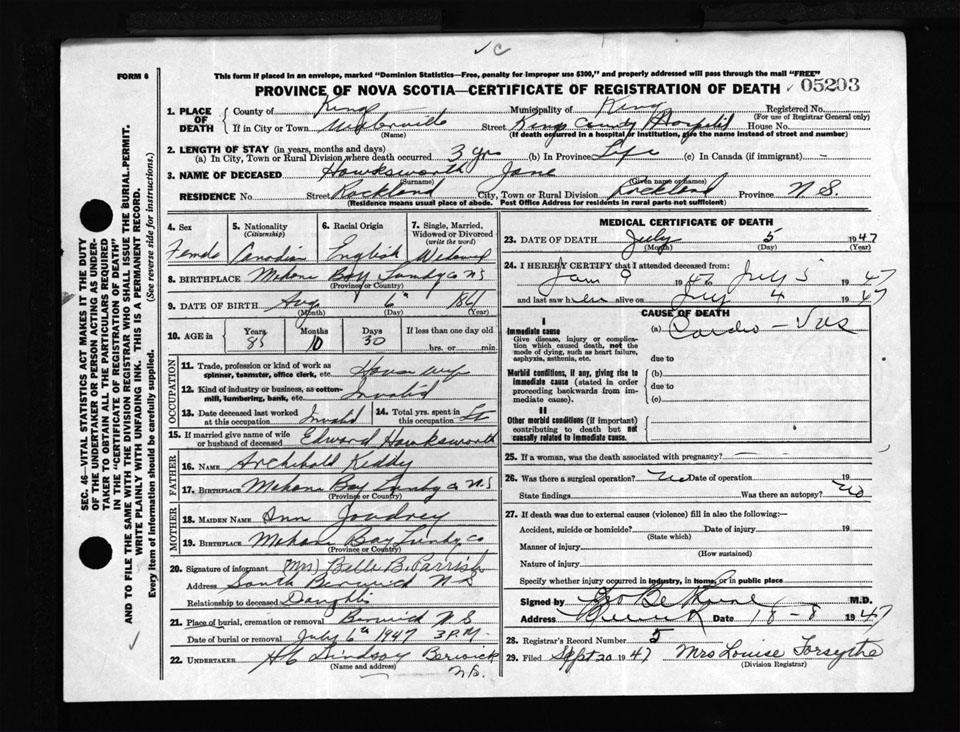 FORM 6
This form if placed in an envelope, marked "Dominion Statistics—Free, penalty for improper use $300," and properly addressed will pass through the mail "FREE"
PROVINCE OF NOVA SCOTIA—CERTIFICATE OF REGISTRATION OF DEATH 05203
1. PLACE OF DEATH County of Kings Municipality of Kings Registered No.
(For use of Registrar General only)
If in City or Town Street Kings County Hospital House No.
(Name) (If death occurred in a hospital or institution, give the name instead of street and number)
2. LENGTH OF STAY (in years, months and days)
(a) In City, Town or Rural Division where death occurred 3 yrs (b) In Province Life (c) In Canada (if immigrant) -
3. NAME OF DECEASED Hawksworth Jane
(Surname) (Given name or names)
RESIDENCE No. Street Rockland City, Town or Rural Division Rockland Province N.S.
(Residence means usual place of abode. Post Office Address for residents in rural parts—not sufficient)
4. Sex 5. Nationality (Citizenship) 6. Racial Origin 7. Single, Married, Widowed or Divorced (write the word)
Female Canadian English Widowed
8. BIRTHPLACE Mahone Bay Lundy Co NS
(Province or Country)
9. DATE OF BIRTH Aug 6th 1861
(Month) (Day) (Year)
10. AGE in Years 85 Months 10 Days 30 If less than one day old
hrs. or min.
OCCUPATION
11. Trade, profession or kind of work as spinner, teamster, office clerk, etc. House Wife
12. Kind of industry or business, as cotton-mill, lumbering, bank, etc. Invalid
13. Date deceased last worked at this occupation Invalid 14. Total yrs. spent in this occupation
15. If married give name of wife or husband of deceased Edward Hawksworth
FATHER
16. NAME Archibald Keddy
17. BIRTHPLACE Mahone Bay Lundy Co N.S
(Province or Country)
MOTHER
18. MAIDEN NAME Ann Joudrey
19. BIRTHPLACE Mahone Bay Lundy Co
(Province or Country)
20. Signature of informant (Mrs) Belle B. Parrish
Address South Berwick N.S
Relationship to deceased Daughter
21. Place of burial, cremation or removal Berwick N.S
Date of burial or removal July 6th 1947 3 P.M.
22. UNDERTAKER H C Lindsay Berwick
(Name and address) N.S.
MEDICAL CERTIFICATE OF DEATH
23. DATE OF DEATH July 5 1947
(Month) (Day) (Year)
24. I HEREBY CERTIFY that I attended deceased from:
Jan 9 1946 July 5 1947
and last saw her alive on July 4 1947
CAUSE OF DEATH
I
Immediate cause (a) Cardio - Vas
Give disease, injury or complication which caused death, not the mode of dying, such as heart failure, asphyxia, asthenia, etc.
due to
Morbid conditions, if any, giving rise to immediate cause (stated in order proceeding backwards from immediate cause).
(b)
due to
(c)
II
Other morbid conditions (if important) contributing to death but not causally related to immediate cause.
25. If a woman, was the death associated with pregnancy?
26. Was there a surgical operation? no Date of operation 19
State findings Was there an autopsy? no
27. If death was due to external causes (violence) fill in also the following:—
Accident, suicide or homicide? Date of injury 19
(State which)
Manner of injury
(How sustained)
Nature of injury
Specify whether injury occurred in industry, in home, or in public place
Signed by M.D.
Address Berwick Date 18-8 1947
28. Registrar's Record Number 5
29. Filed Sept 20 1947 Mrs Louise Forsythe
(Division Registrar)
SEC. 46—VITAL STATISTICS ACT MAKES IT THE DUTY
OF THE UNDERTAKER OR PERSON ACTING AS UNDER-
TAKER TO OBTAIN ALL THE PARTICULARS REQUIRED
IN THE "CERTIFICATE OF REGISTRATION OF DEATH"
AND TO FILE THE SAME WITH THE DIVISION REGISTRAR WHO SHALL ISSUE THE BURIAL-PERMIT.
WRITE PLAINLY WITH UNFADING INK. THIS IS A PERMANENT RECORD.
Every item of information should be carefully supplied. (See reverse side for instructions.)